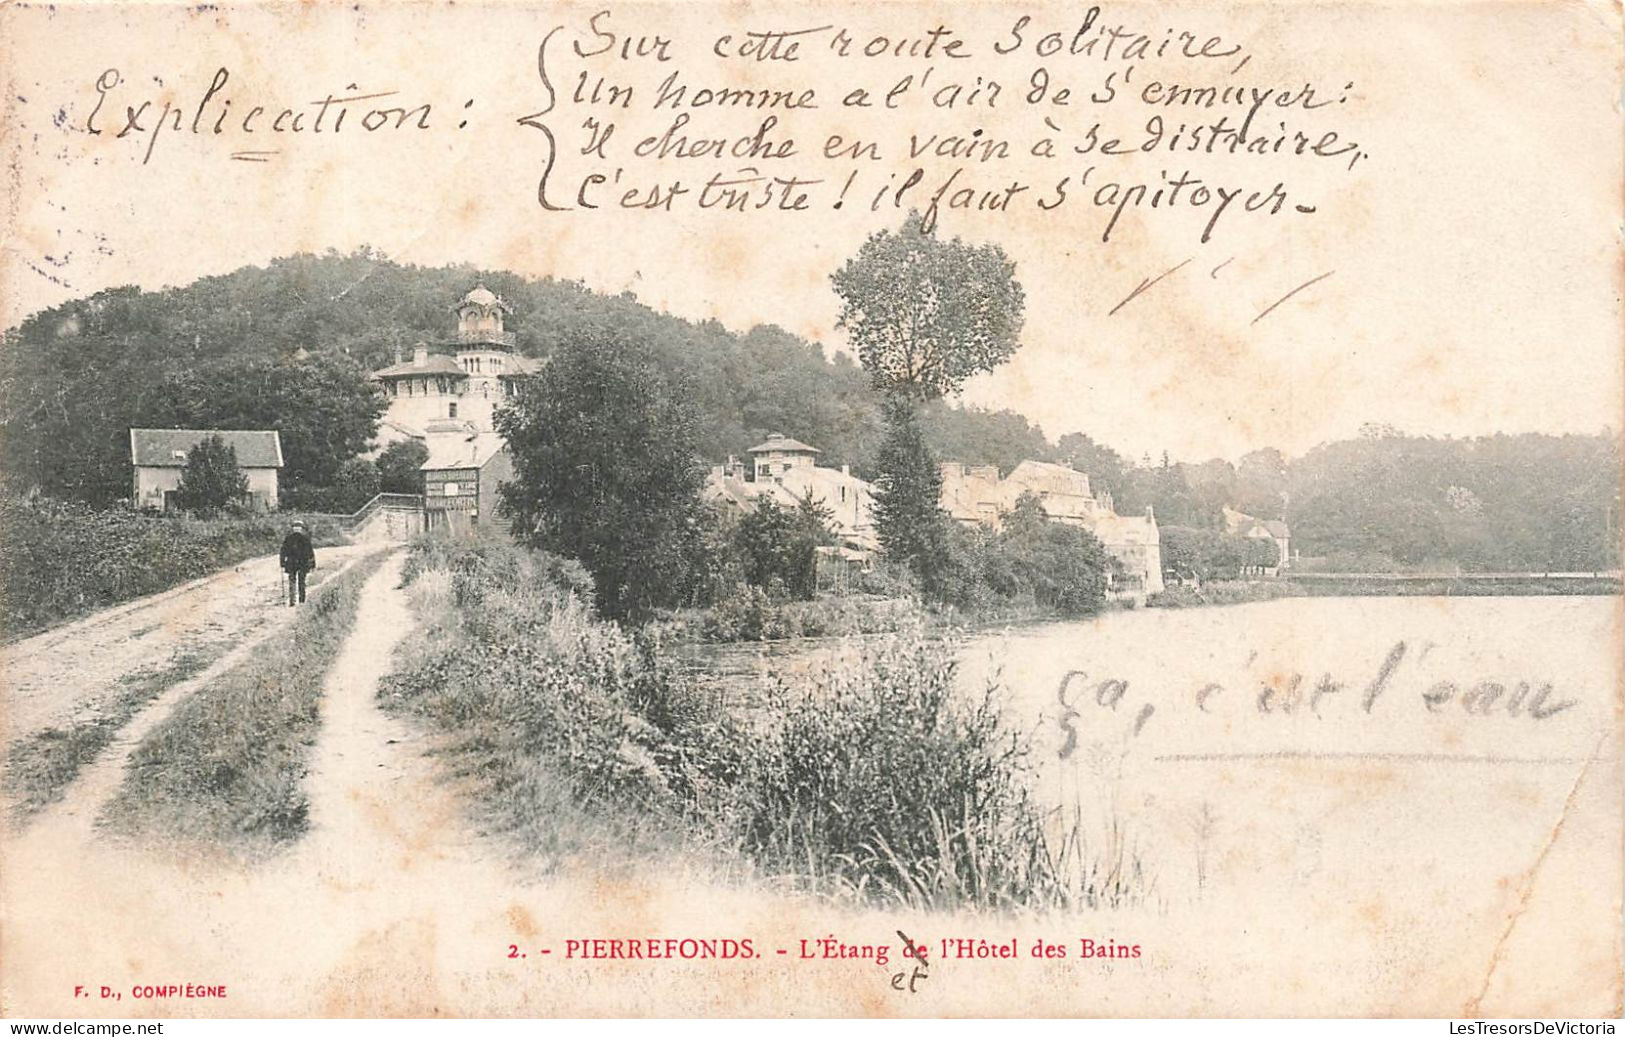 Explication :
Sur cette route solitaire,
Un homme a l'air de s'ennuyer :
Il cherche en vain à se distraire,
C'est triste ! il faut s'apitoyer -
ça, c'est l'eau
2. - PIERREFONDS. - L'Étang de l'Hôtel des Bains
et
F. D., COMPIÈGNE
LesTresorsDeVictoria
Own photo by www.delcampe.net